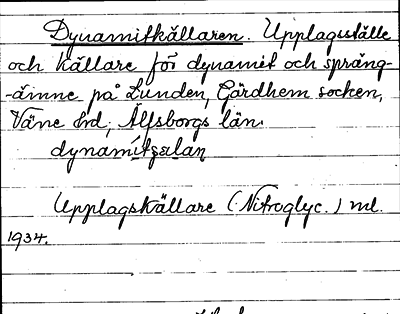 Dynamitkällaren. Upplagsställe
och källare för dynamit och spräng-
-ämne på Lunden, Gärdhem socken,
Väne hrd, Älfsborgs län.
dynamitsalan
Upplagskällare (Nitroglyc.) ml.
1934.